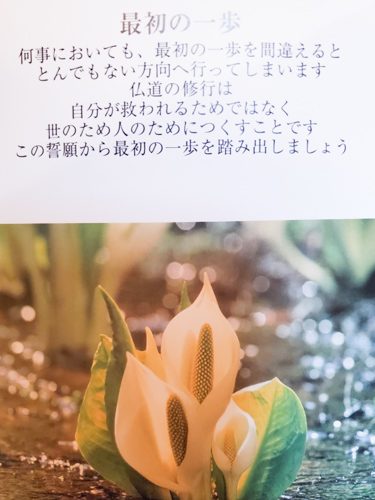 最初の一歩
何事においても、最初の一歩を間違えると
とんでもない方向へ行ってしまいます
仏道の修行は
自分が救われるためではなく
世のため人のためにつくすことです
この誓願から最初の一歩を踏み出しましょう